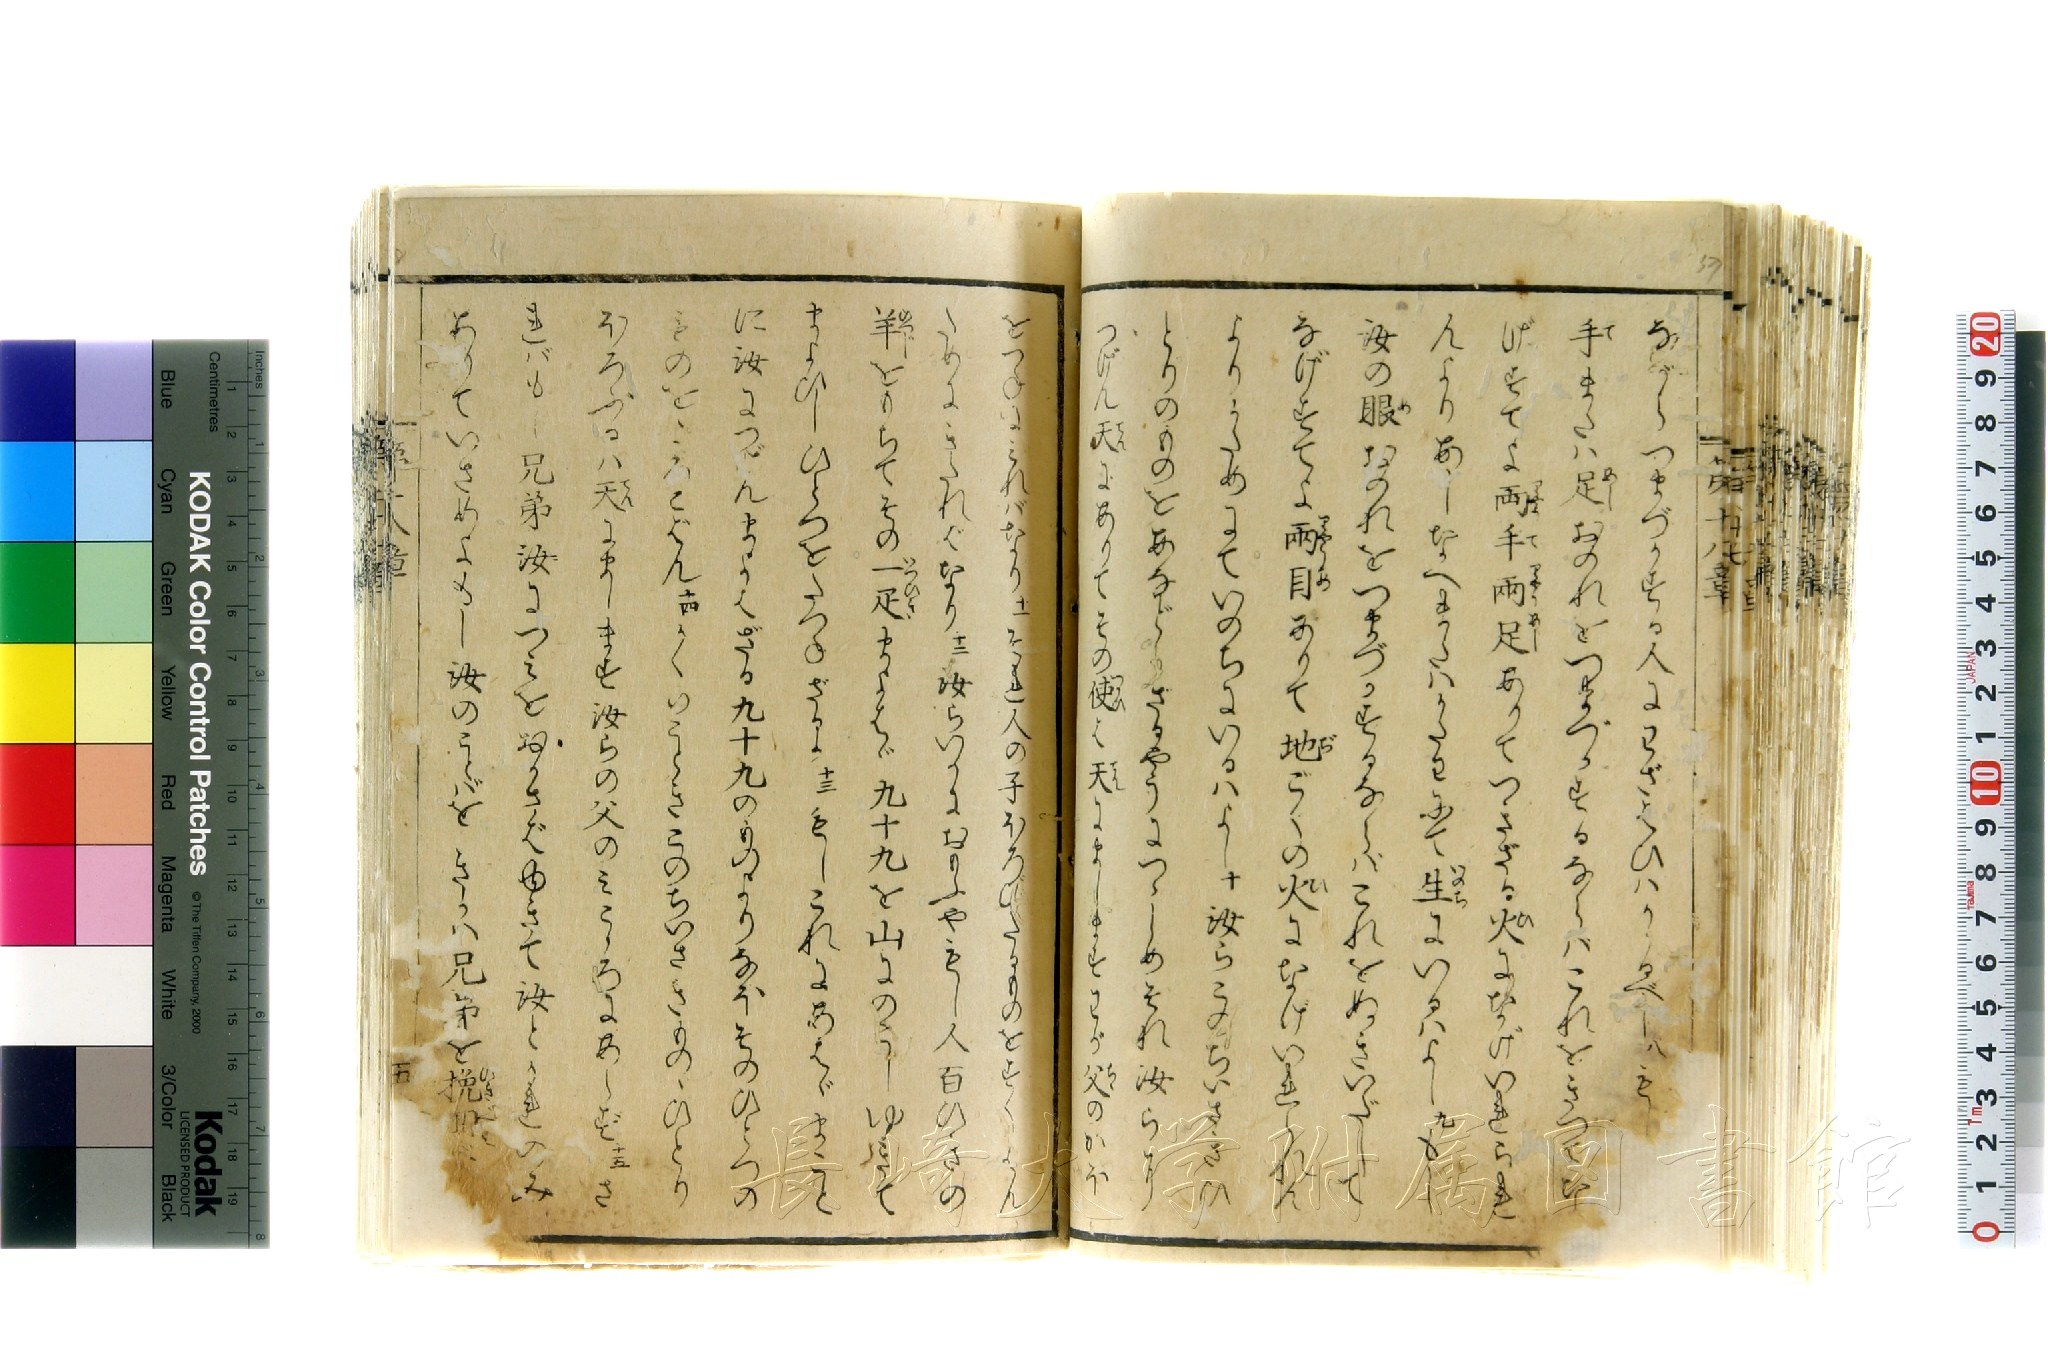 ながらつまづかする人にわざはひハかゝるべし八もし
手または足おのれをつまづかするならバこれをきつてな
げすてよ兩手兩足ありてつきざる火になげいれられ
んよりあしなへまたハかたわにて生にいるハよし九もし
汝の眼おのれをつまづかするならバこれをぬきいだして
なげすてよ兩目ありて地ごくの火になげいれられん
よりかためにていのちにいるハよし十汝らこのちいさきひ
とりのものをあなどらざるやうにつゝしめそれ汝らに
つげん天にありてその使は天にましますわが父のかほ
をつねにみればなり十一それ人の子ほろびたるものをすくはん
ためにきたればなり十二汝らいかにおもふややもし人百ひきの
羊をもちてその一疋まよはゞ九十九を山にのこしゆきて
まよひしひとつをたづねざるか十三もしこれにあはゞまこと
に汝につげんまよはざる九十九のものよりなほそのひとつの
ものをよろこばん十四かくいふときこのちいさきものゝひとり
ほろぶるハ天にまします汝らの父のみこゝろにあらず十五さ
ればもし兄弟汝につみをおかさばゆきて汝とかれのみ
ありていさめよもし汝のことばをきかバ兄弟を挽回
第十八章
五
57
長崎大学附属図書館
KODAK Color Control Patches
© The Tiffen Company, 2000
Kodak
LICENSED PRODUCT
Centimetres
Inches
Blue
Cyan
Green
Yellow
Red
Magenta
White
3/Color
Black
JAPAN
Tajima